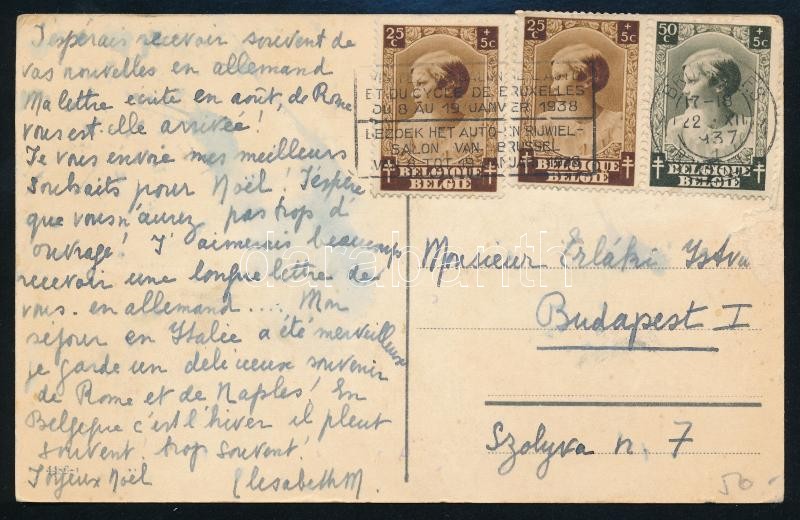 J'espérais recevoir souvent de
vos nouvelles en allemand
Ma lettre écrite en août, de Rome
vous est-elle arrivée!
Je vous envoie mes meilleurs
souhaits pour Noël! J'espère
que vous n'aurez pas trop d'
ouvrage! J'aimerais beaucoup
recevoir une longue lettre de
vous. en allemand .... Mon
séjour en Italie a été merveilleux
je garde un délicieux souvenir
de Rome et de Naples! En
Belgique c'est l'hiver il pleut
souvent. trop souvent!
Joyeux Noël Elisabeth M.
25 c + 5c
25 c + 5c
50 c + 5c
ET DU CYCLE DE BRUXELLES
DU 8 AU 19 JANVIER 1938
BEZOEK HET AUTO- EN RIJWIEL-
SALON VAN BRUSSEL
17-18
22 XII
1937
BELGIQUE
BELGIË
BELGIQUE
BELGIË
BELGIQUE
BELGIË
darabanth
Monsieur Erláki Istva
Budapest I
Szolyva n. 7
50 -